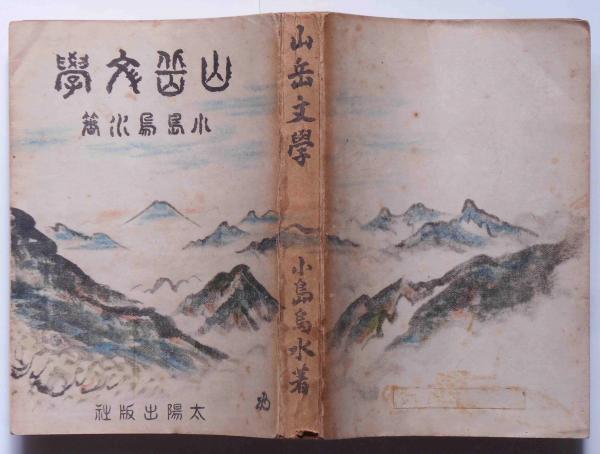 山岳文學
小島烏水著
太陽出版社
山岳文學
小島烏水著